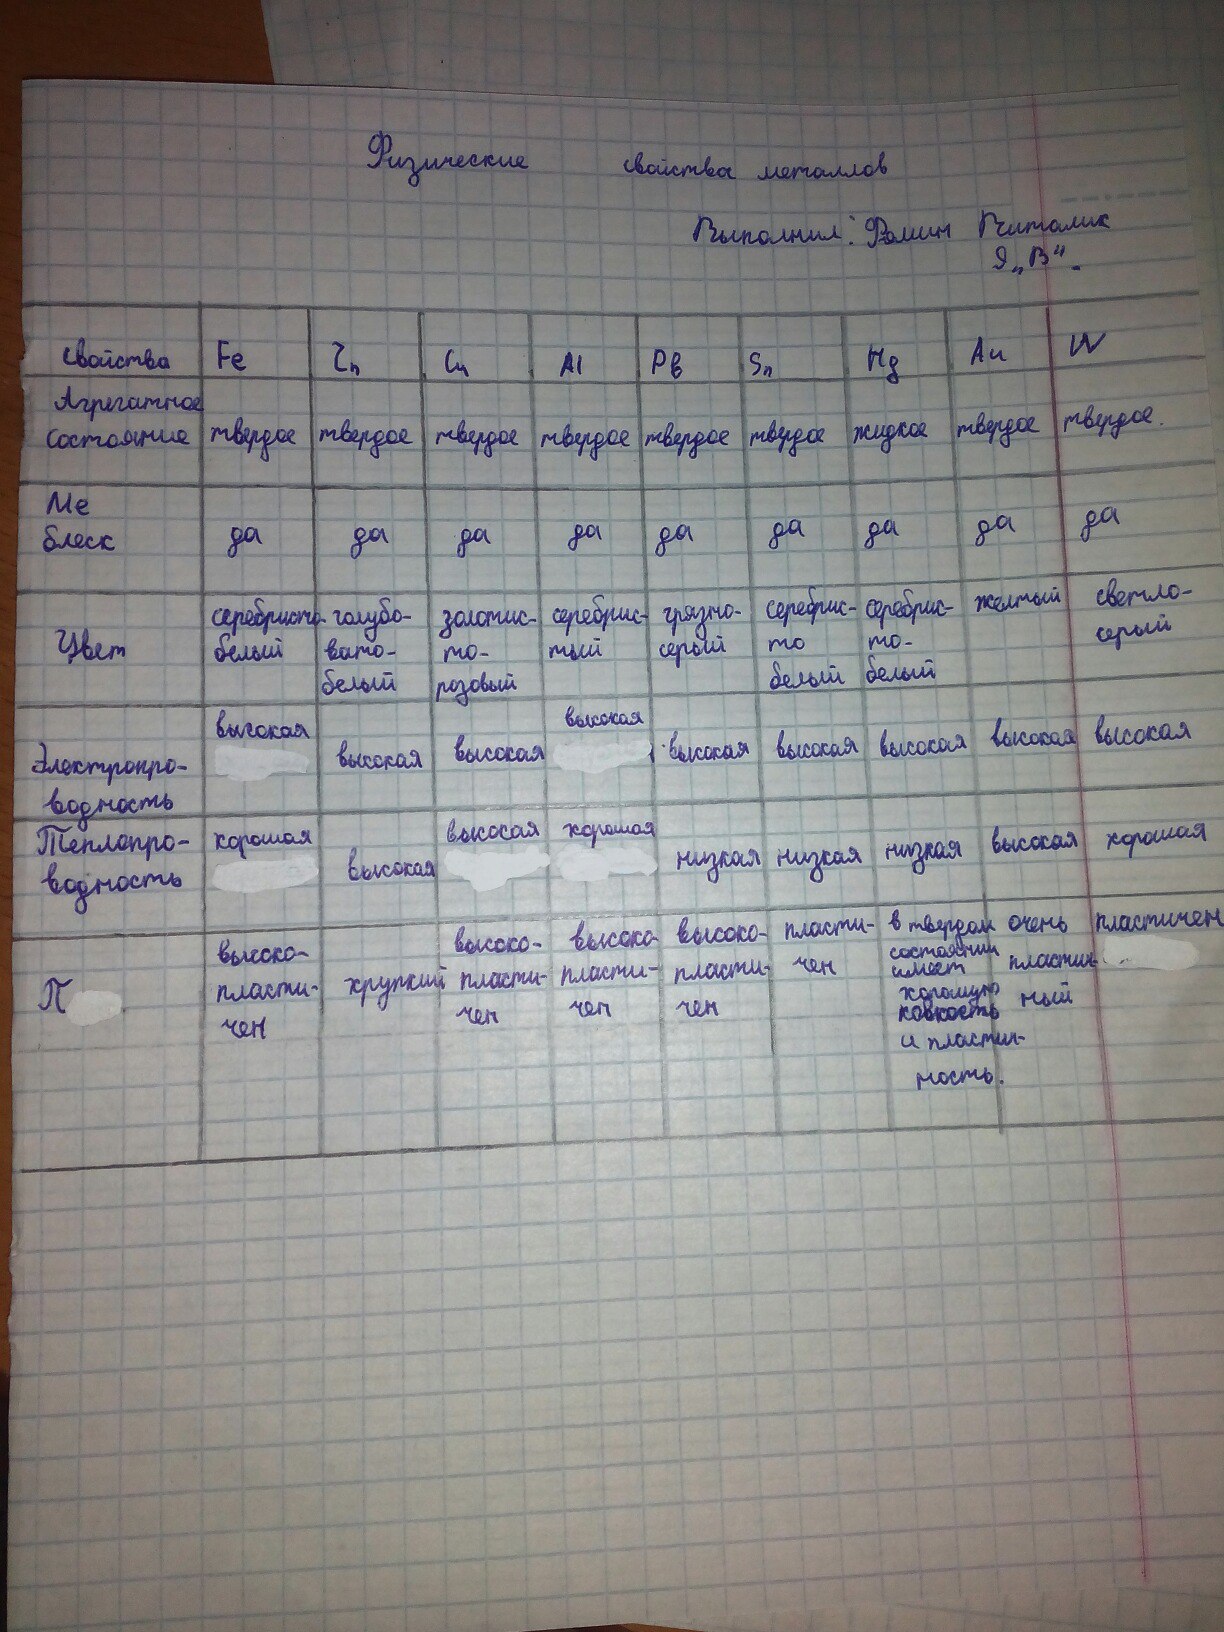 Физические свойства металлов
Выполнил: Фомин Виталик
9 „В".
Свойства Fe Zn Cu Al Pb Sn Hg Au W
Агрегатное
состояние твердое твердое твердое твердое твердое твердое жидкое твердое твердое.
Ме
блеск да да да да да да да да да
Цвет
серебристо-
белый
голубо-
вато-
белый
золотис-
то-
розовый
серебрис-
тый
грязно-
серый
серебрис-
то
белый
серебрис-
то-
белый
желтый
светло-
серый
Электропро-
водность
высокая высокая высокая высокая высокая высокая высокая высокая высокая
Теплопро-
водность
хорошая высокая высокая хорошая низкая низкая низкая высокая хорошая
П
высоко-
пласти-
чен
хрупкий
высоко-
пласти-
чен
высоко-
пласти-
чен
высоко-
пласти-
чен
пласти-
чен
в твердом
состоянии
имеет
хорошую
ковкость
и пластич-
ность.
очень
пластич-
ный
пластичен